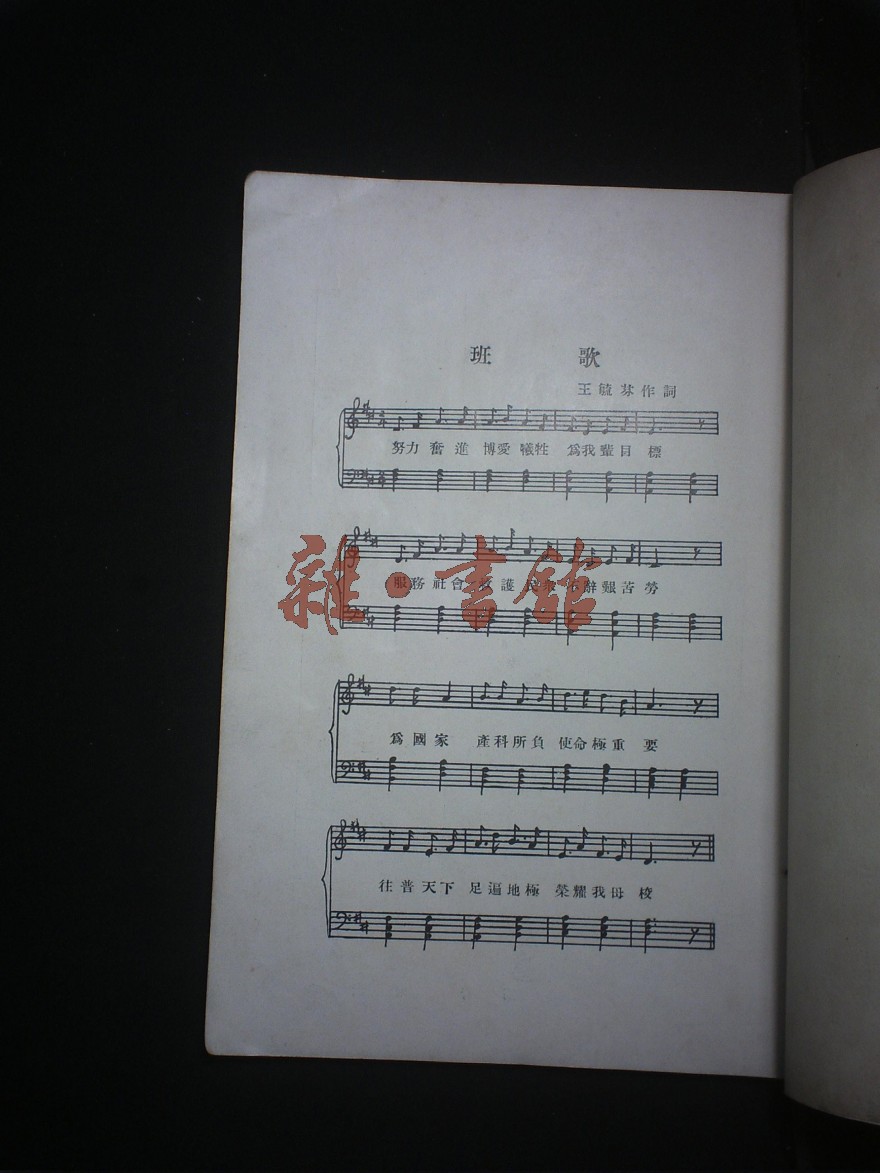 班 歌
王毓芬作詞
努力奮進 博愛犧牲 爲我輩目標
服務社會 護民衆 不辭艱苦勞
雜·書館
爲國家 產科所負 使命極重要
往普天下 足遍地極 榮耀我母校